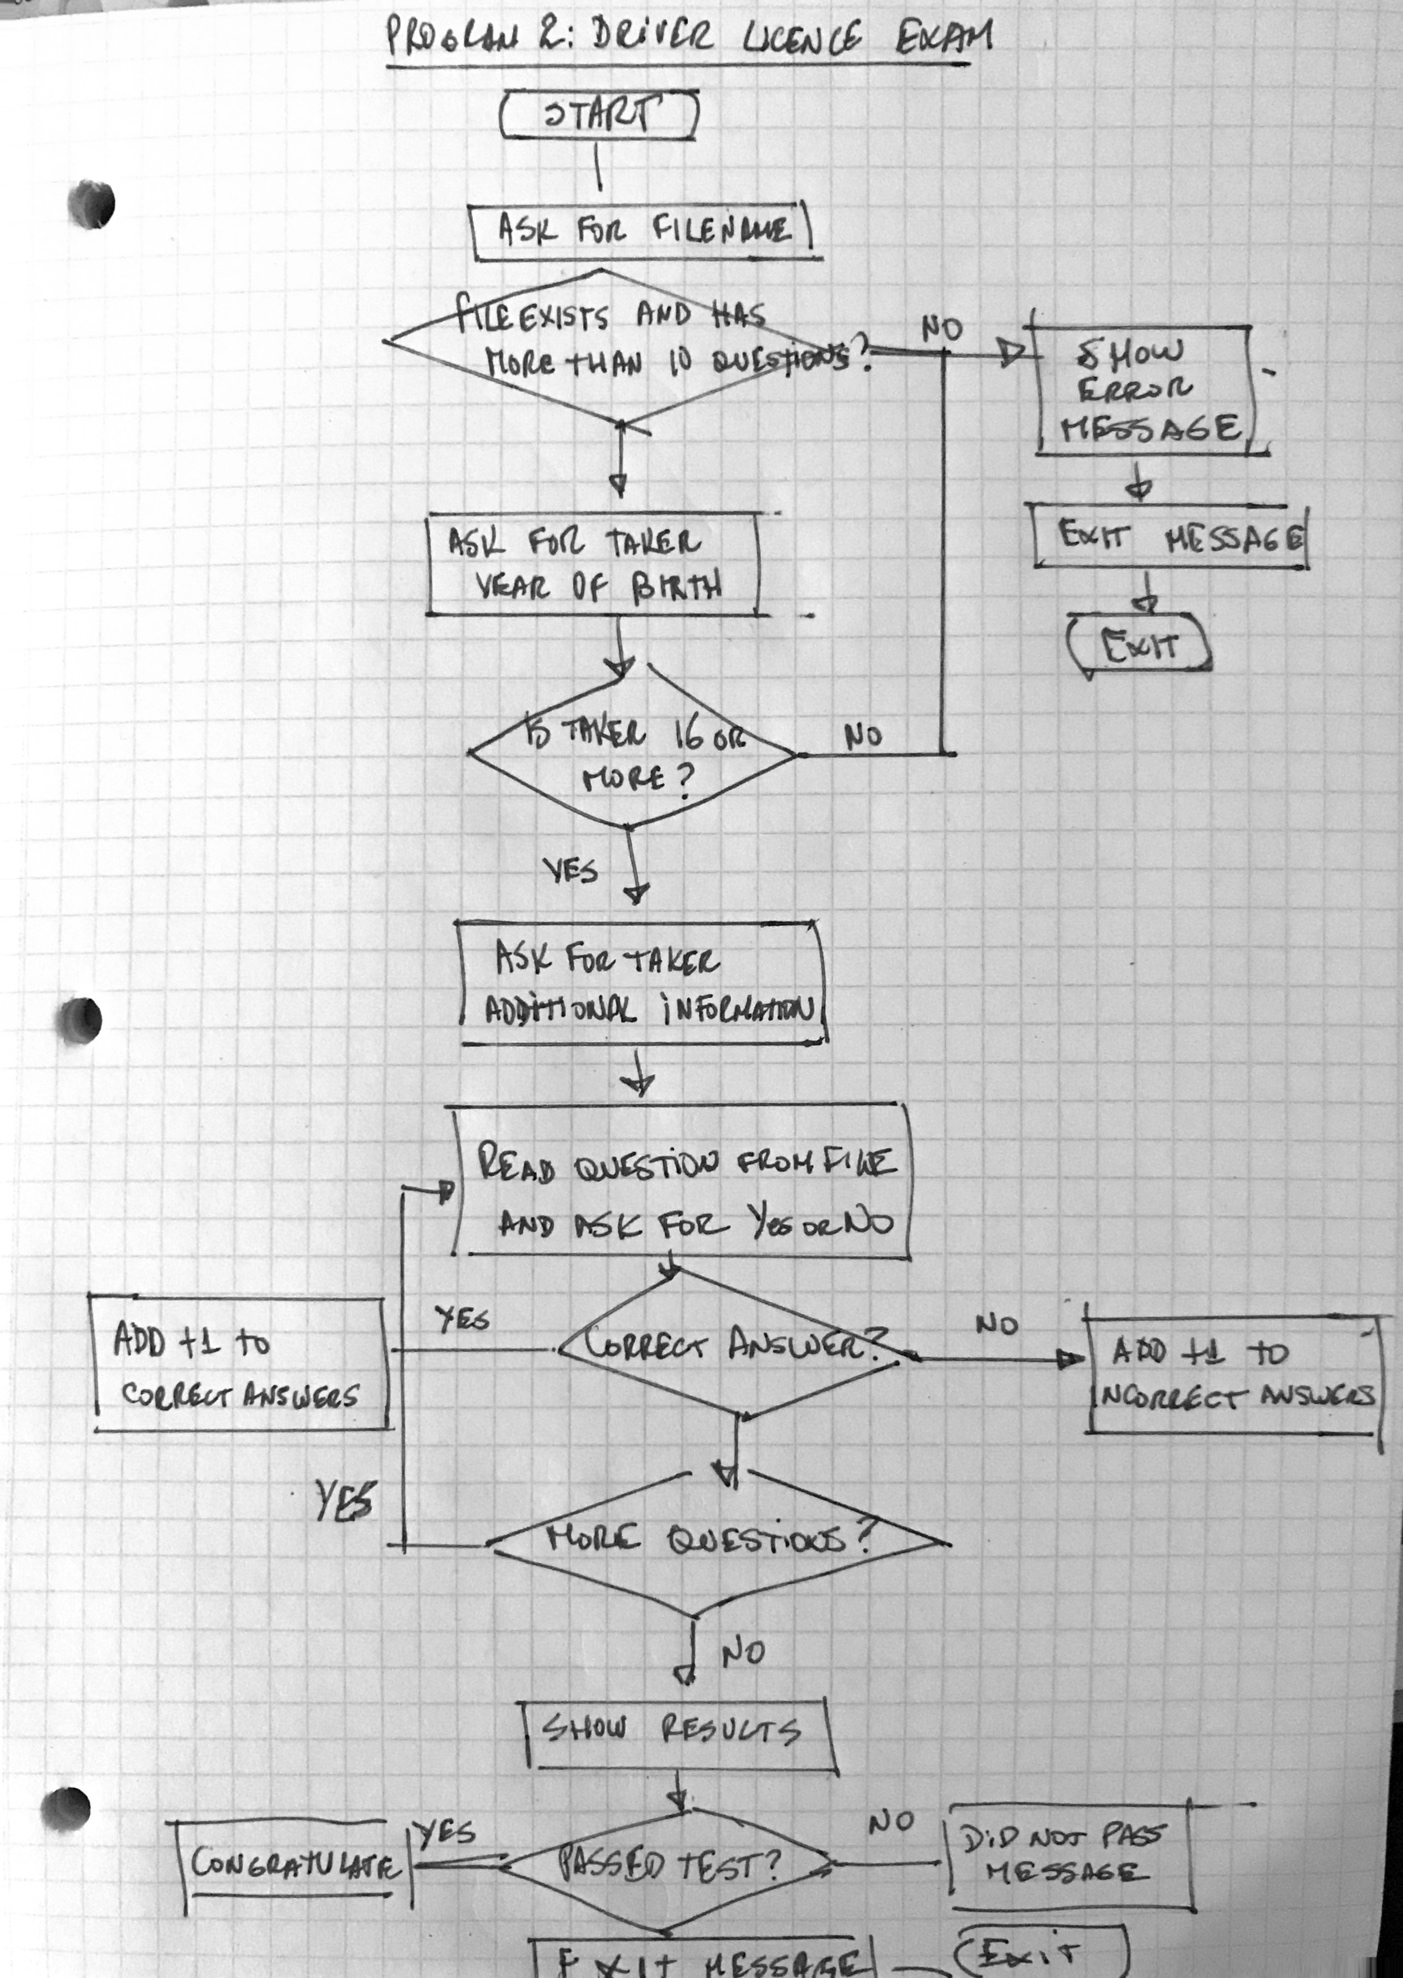 PROGRAM 2: DRIVER LICENCE EXAM
START
ASK FOR FILENAME
FILE EXISTS AND HAS
MORE THAN 10 QUESTIONS?
NO
SHOW
ERROR
MESSAGE
EXIT MESSAGE
EXIT
ASK FOR TAKER
YEAR OF BIRTH
IS TAKER 16 OR
MORE?
NO
YES
ASK FOR TAKER
ADDITIONAL INFORMATION
READ QUESTION FROM FILE
AND ASK FOR YES OR NO
ADD +1 TO
CORRECT ANSWERS
YES
CORRECT ANSWER?
NO
ADD +1 TO
INCORRECT ANSWERS
YES
MORE QUESTIONS?
NO
SHOW RESULTS
CONGRATULATE
YES
PASSED TEST?
NO
DID NOT PASS
MESSAGE
EXIT MESSAGE
EXIT